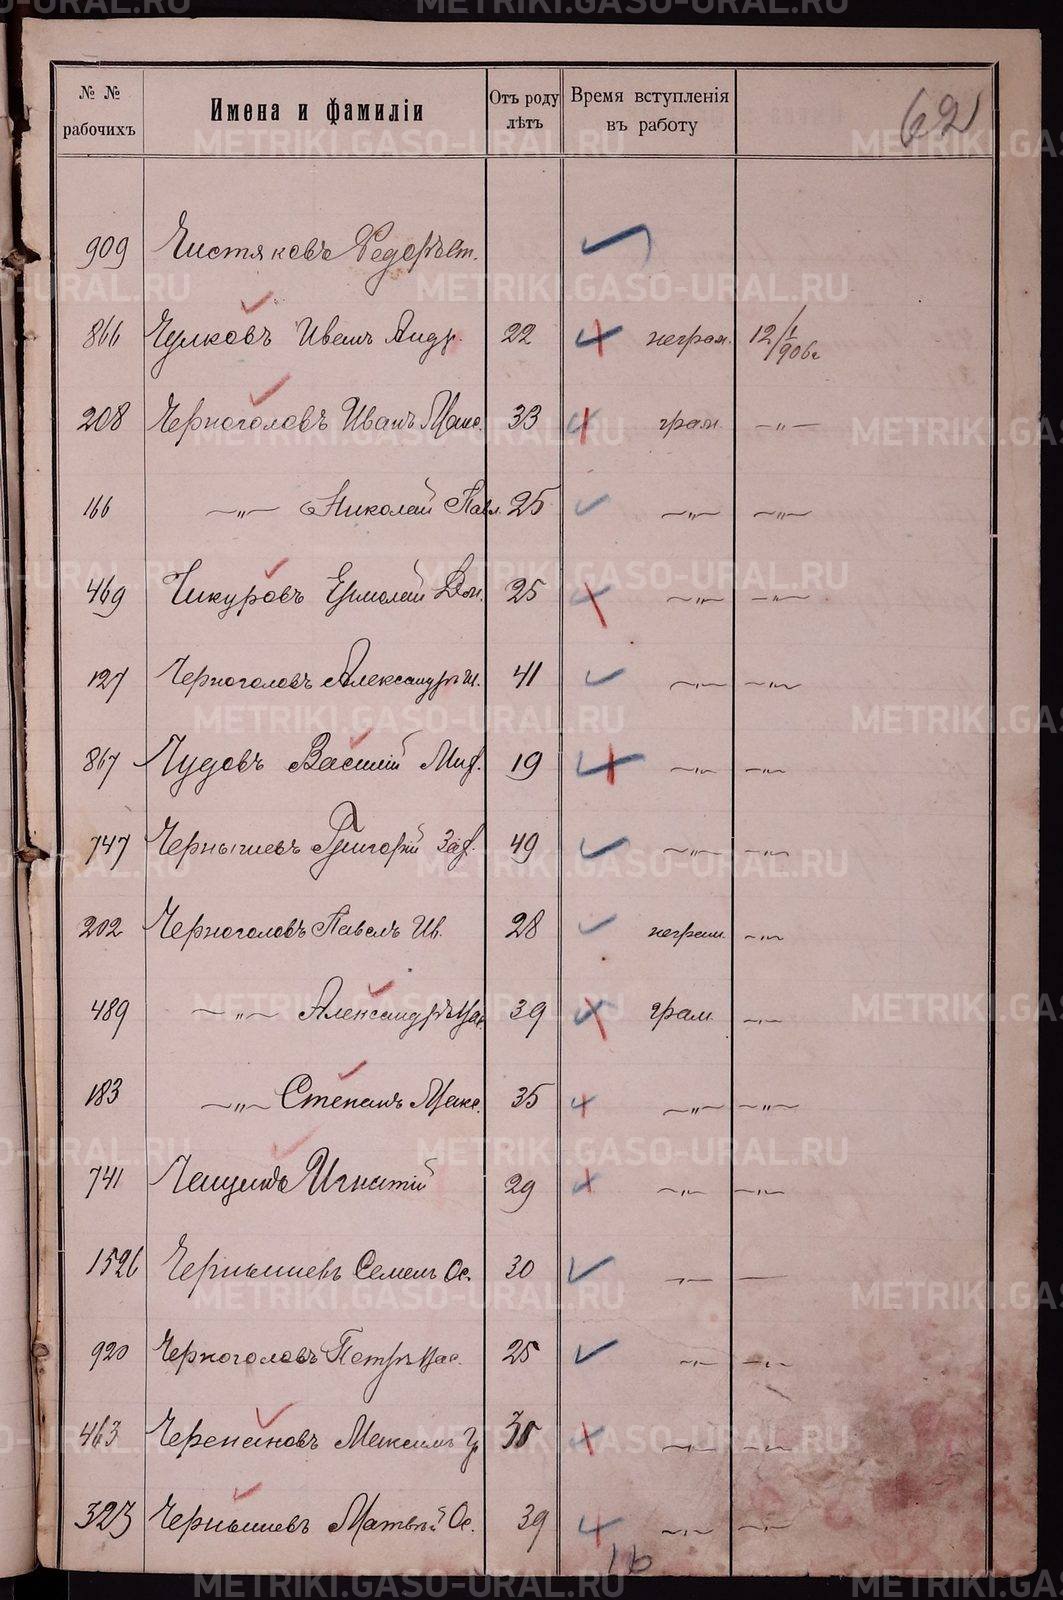 62
№ № рабочихъ Имена и фамиліи Отъ роду лѣтъ Время вступленія въ работу
909 Чистяковъ Федоръ Ст.
866 Чулковъ Иванъ Андр. 22 неграм. 12/I 906г
208 Черноголовъ Иванъ Макс. 33 грам. —„—
166 —„— Николай Павл. 25 —„— —„—
469 Чикуровъ Ермолай 25 —„— —„—
127 Черноголовъ Александръ 41 —„— —„—
867 Чудовъ Василій Миф. 19 —„— —„—
747 Чернышевъ Григорій Заф. 49 —„— —„—
202 Черноголовъ Павелъ Ив. 28 неграм. —„—
489 —„— Александръ 39 грам. —„—
183 —„— Степанъ Макс. 35 —„— —„—
741 Игнатій 29 —„— —„—
1526 Чернышевъ Семенъ Ос. 30 —„— —
920 Черноголовъ Петръ 25 —„— —„—
463 Черепановъ Максимъ —„— —„—
323 Чернышевъ Матвѣй Ос. 39 —„— —„—
16
METRIKI.GASO-URAL.RU